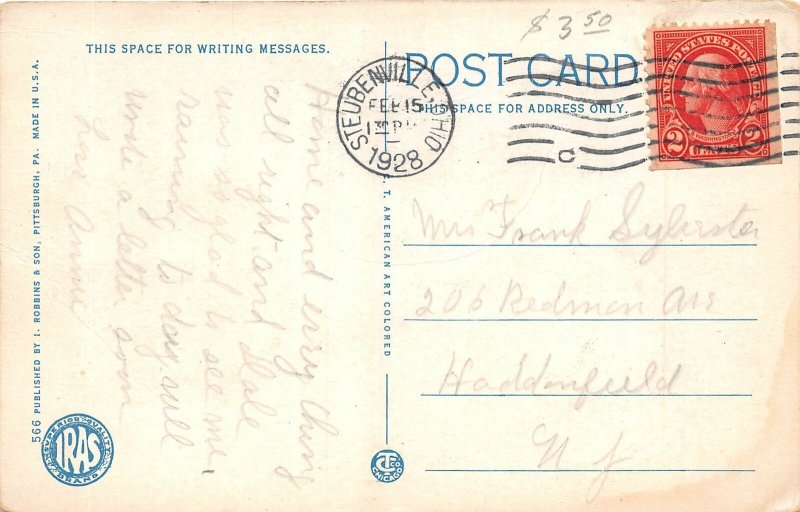 $ 3 50
THIS SPACE FOR WRITING MESSAGES.
POST CARD
THIS SPACE FOR ADDRESS ONLY.
STEUBENVILLE, OHIO
FEB 15
1928
C
UNITED STATES POSTAGE
WASHINGTON
2 CENTS 2
Home and every thing
all right and Dale
was so glad to see me,
raining to day will
write a letter soon
Annie
Mrs Frank Sylvester
206 Redman Ave
Haddonfield
N J
566 PUBLISHED BY I. ROBBINS & SON, PITTSBURGH, PA. MADE IN U.S.A.
C. T. AMERICAN ART COLORED
SUPERIOR QUALITY
IRAS
BRAND
CHICAGO